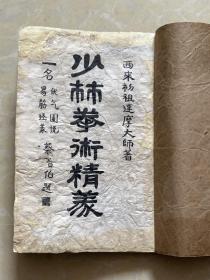 西來初祖達摩大師著
少林拳術精義
一名
伏气圖說
易筋經義
蔡 伯題